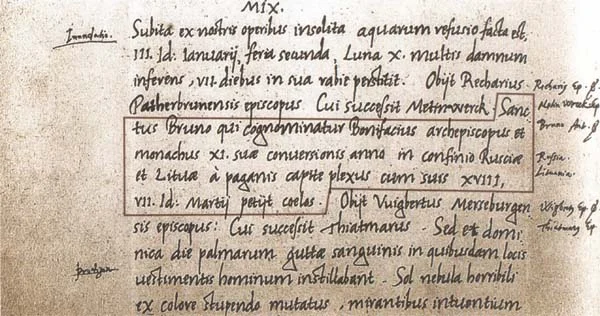 MIX.
Inundatio.
Subita ex nostris operibus insolita aquarum refusio facta est,
III. Id: Ianuarij, feria secunda, Luna X. multis damnum
inferens, VII. diebus in sua rabie perstitit. Obijt Recharius
Patherbrunensis episcopus Cui successit Sanc
tus Bruno qui cognominatur Bonifacius archepiscopus et
monachus XI. suæ conversionis anno in confinio Rusciæ
et Lituæ à paganis capite plexus cum suis XVIII,
VII. Id: Martij petijt coelos. Obijt Vuigbertus Merseburgen
sis episcopus: Cui successit Thiatmarus. Sed et domi
nica die palmarum guttæ sanguinis in quibusdam locis
vestimentis hominum instillabant. Sol nebula horribili
ex colore stupendo mutatus, mirantibus intuentium
Ep.
Ep
Bruno
Russia.
Lituania.
Ep.
Ep